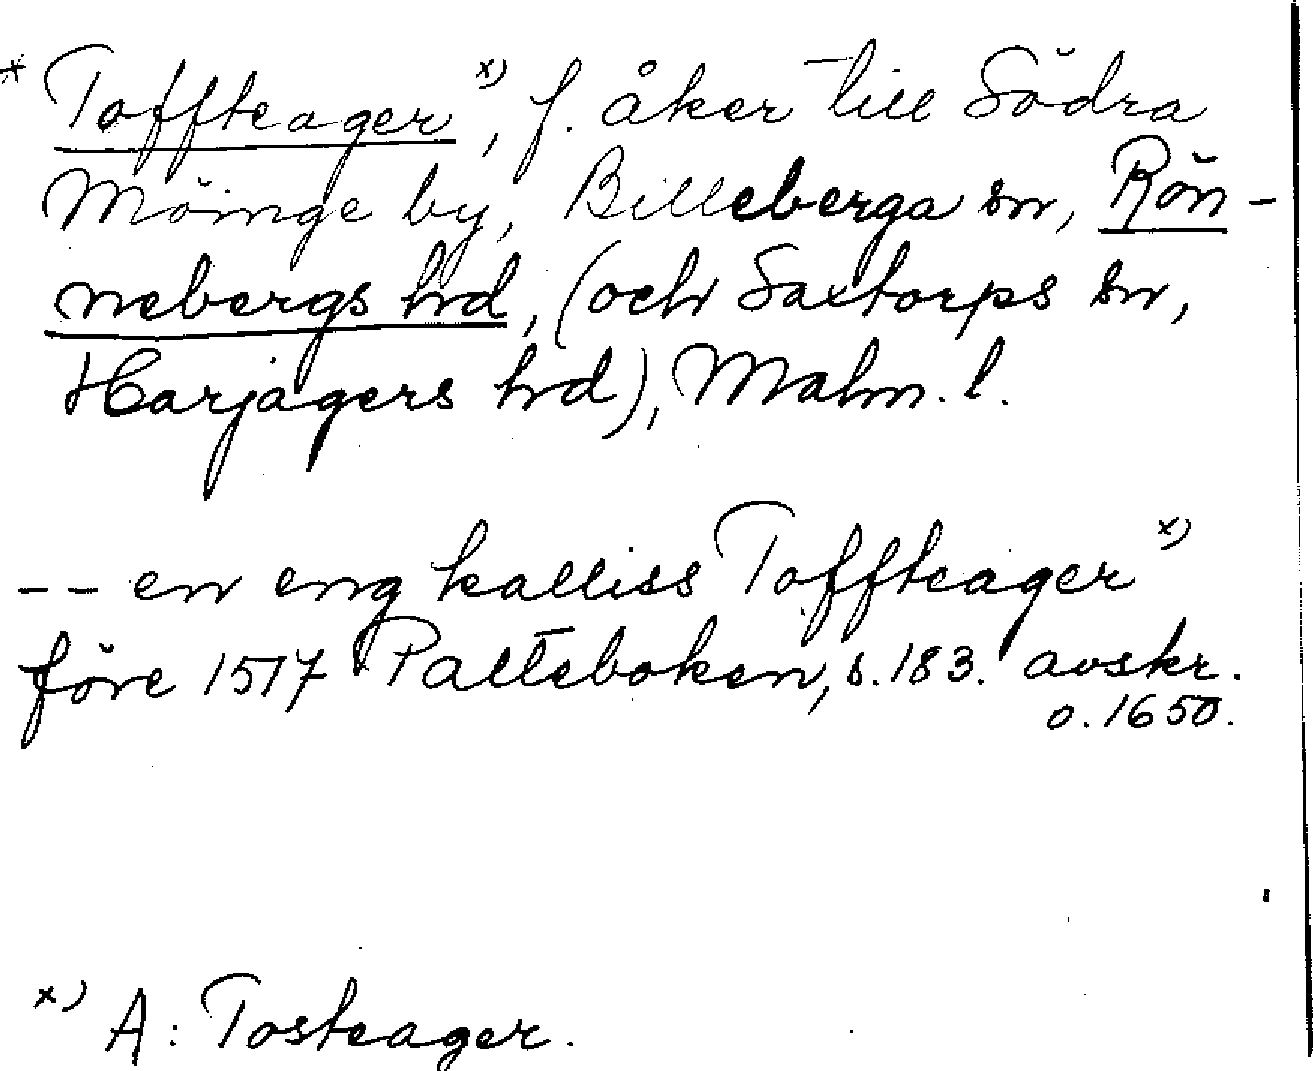 * Toffteager x), f. åker till Södra
Möinge by, Billeberga sn, Rön-
nebergs hrd, (och Saxtorps sn,
Harjagers hrd), Malm. l.
-- en eng kalliss Toffteager x)
före 1517 Palteboken, s. 183. avskr.
o. 1650.
x) A: Tosteager.